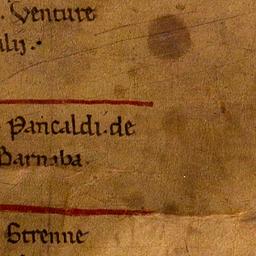 . Venture
alij.
Pancaldi. de
Barnaba.
Strenne